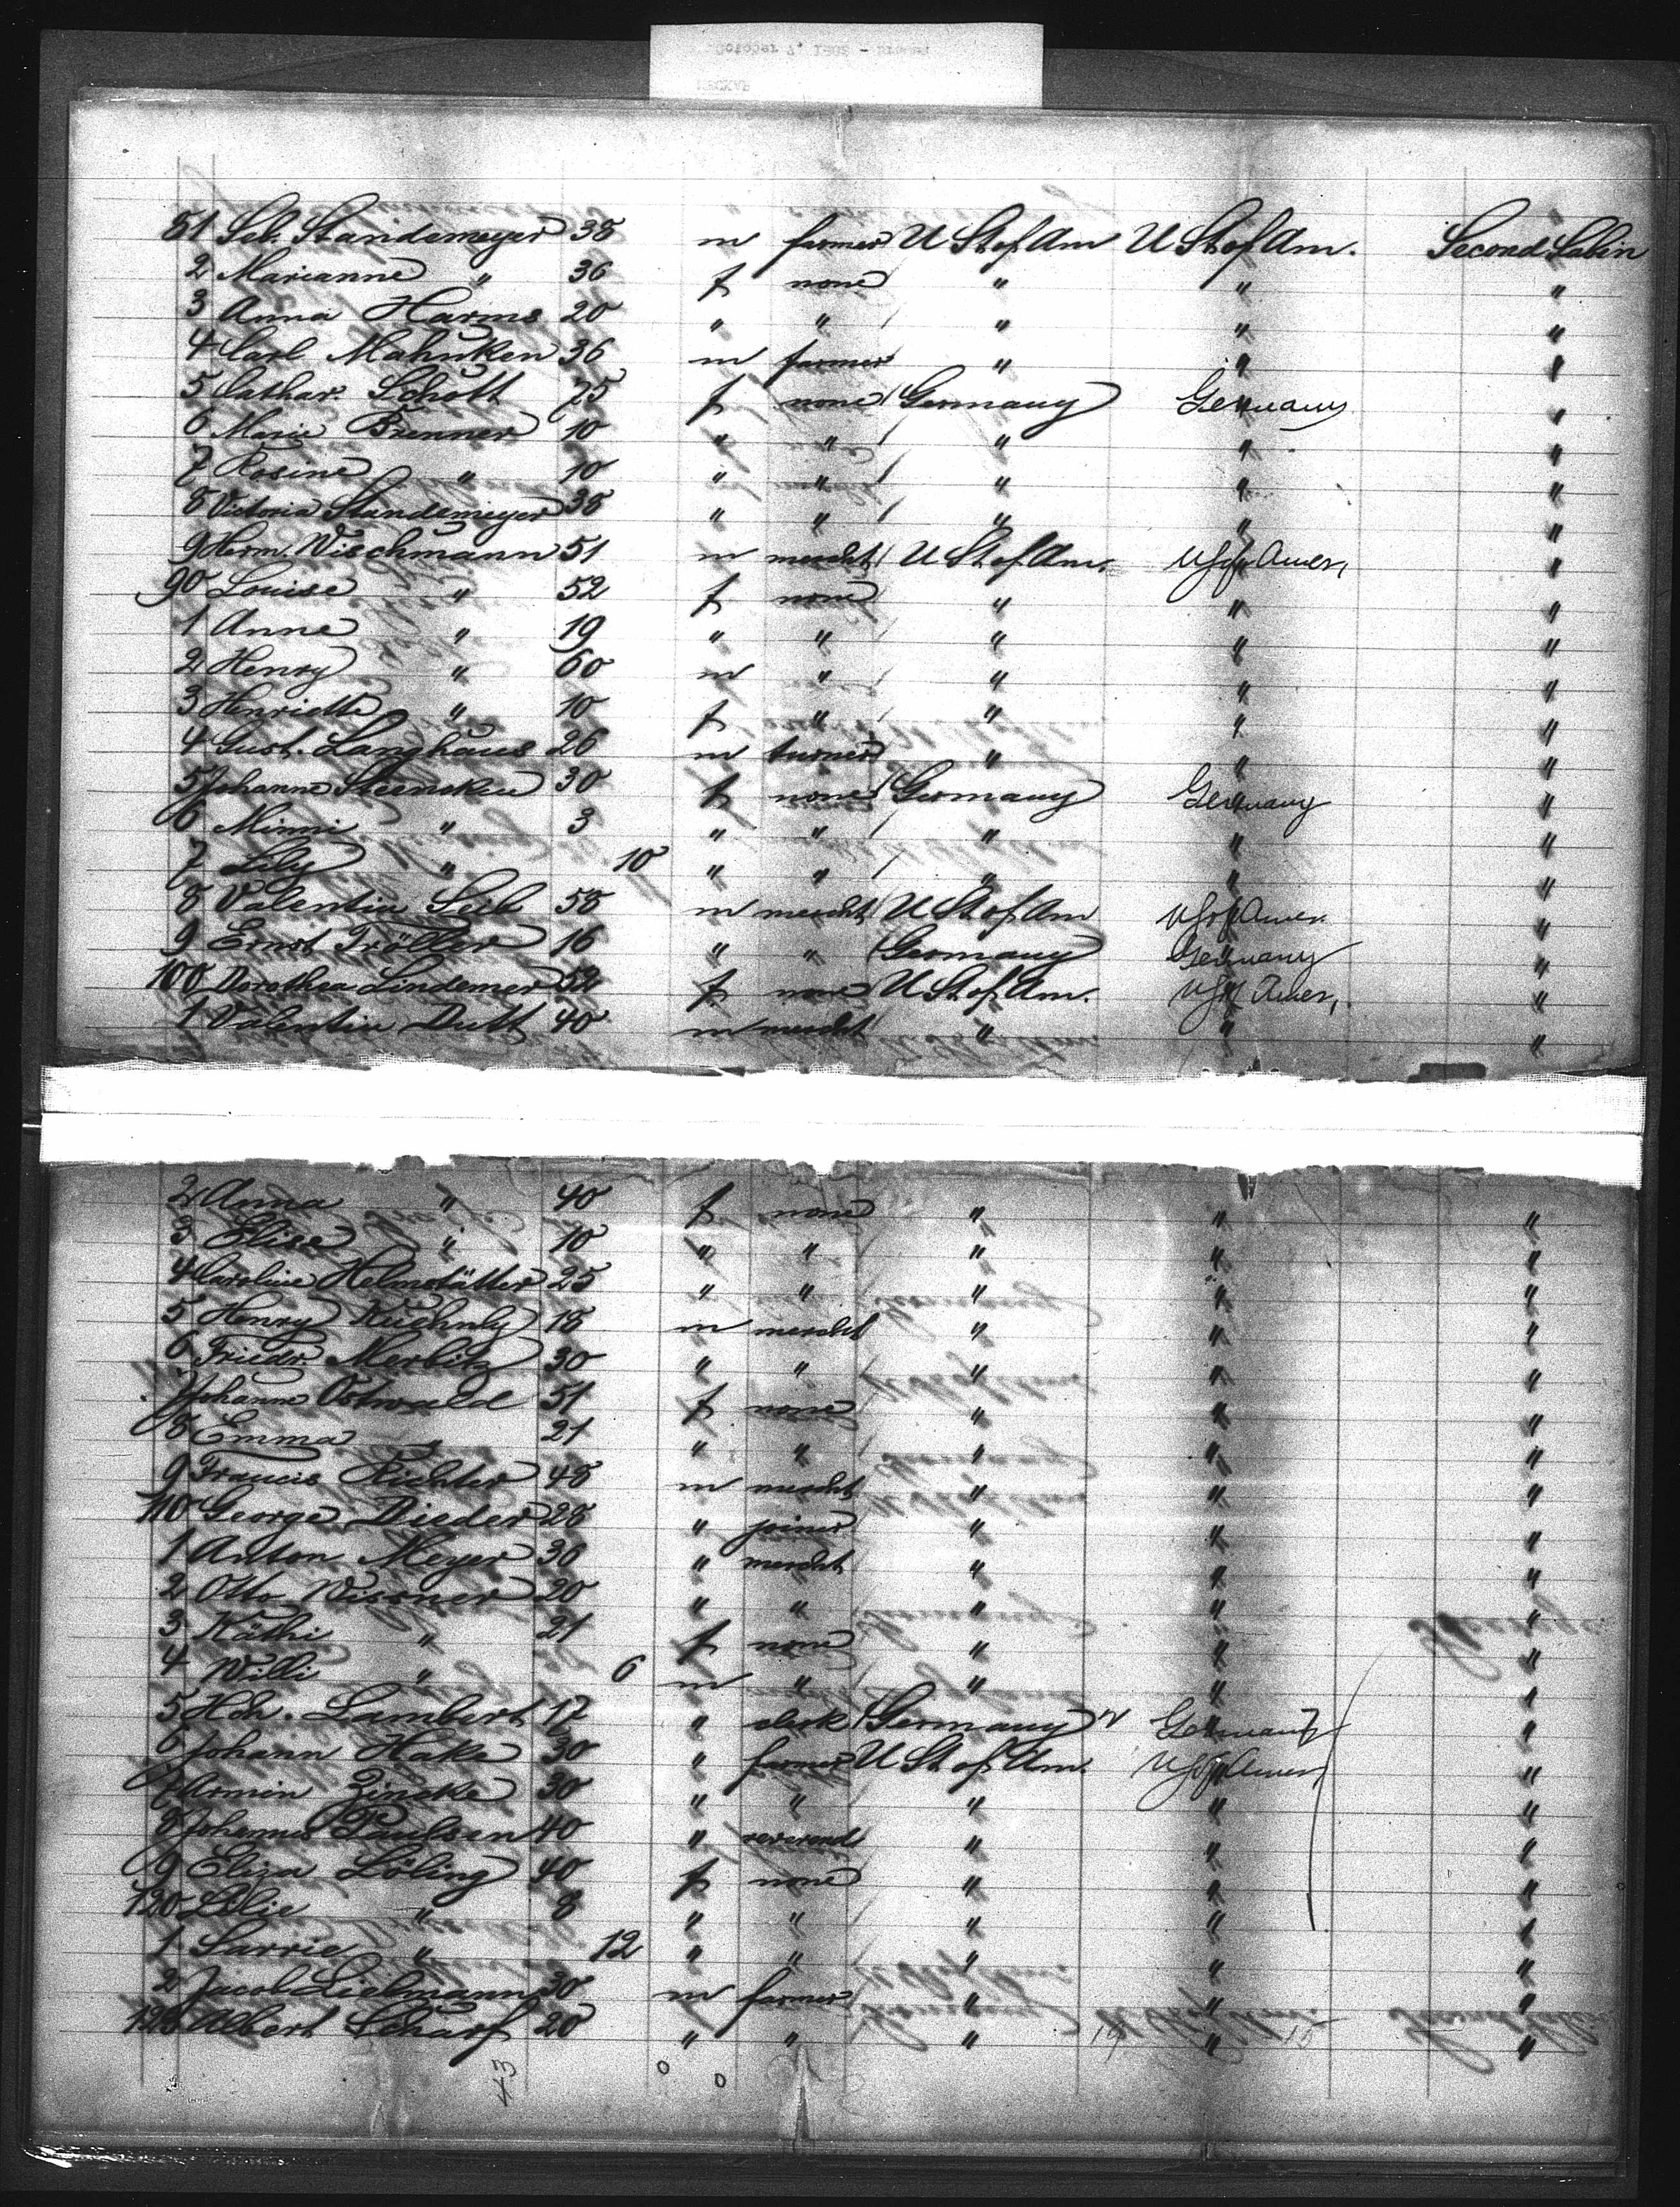 81 Seb. Standemeyer 38 m farmer U St of Am U St of Am. Second Cabin
2 Marianne " 36 f none " " "
3 Anna Harms 20 " " " " "
4 Carl Mahnken 36 m farmer " " "
5 Cathar. Schott 25 f none Germany Germany "
6 Marie Brenner 10 " " " " "
7 Rosine " 10 " " " " "
8 Victoria Standemeyer 38 " " " " "
9 Herm. Wischmann 51 m mercht U St of Am. U S of Amer. "
90 Louise " 52 f none " " "
1 Anne " 19 " " " " "
2 Henry " 60 m " " " "
3 Henriette " 10 f " " " "
4 Gust. Langhaus 26 m turner " " "
5 Johanne Steencken 30 f none Germany Germany "
6 Minni " 3 " " " " "
7 Lily " 10 " " " " "
8 Valentin Seib 58 m mercht U St of Am U S of Amer "
9 Ernst Tröller 16 " " Germany Germany "
100 Dorothea Lindemer 52 f none U St of Am. U S of Amer. "
1 Valentin Dutt 40 m mercht " " "
2 Anna " 40 f none " " "
3 Elise " 10 " " " " "
4 Caroline Helmstätter 25 " " " " "
5 Henry 18 m mercht " " "
6 Friedr. Merbitz 30 " " " " "
7 Johanne Ostwald 51 f none " " "
8 Emma " 21 " " " " "
9 Francis Richter 48 m mercht " " "
110 George Dieder 28 " joiner " " "
1 Anton Meyer 36 " mercht " " "
2 Otto Wissner 20 " " " " "
3 Käthi " 21 f none " " "
4 Willi " 6 m " " " "
5 Hch. Lambert 17 " clerk Germany Germany "
6 Johann Hake 30 " farmer U St of Am. U S of Amer "
7 Armin Zincke 30 " " " " "
8 Johannes Paulsen 40 " reverend " " "
9 Eliza Löling 40 f none " " "
120 Lilie " 8 " " " " "
1 Carrie " 12 " " " " "
2 Jacob Lielmann 30 m farmer " " "
123 Albert Scharf 20 " " " " "
43 0 0 19 15